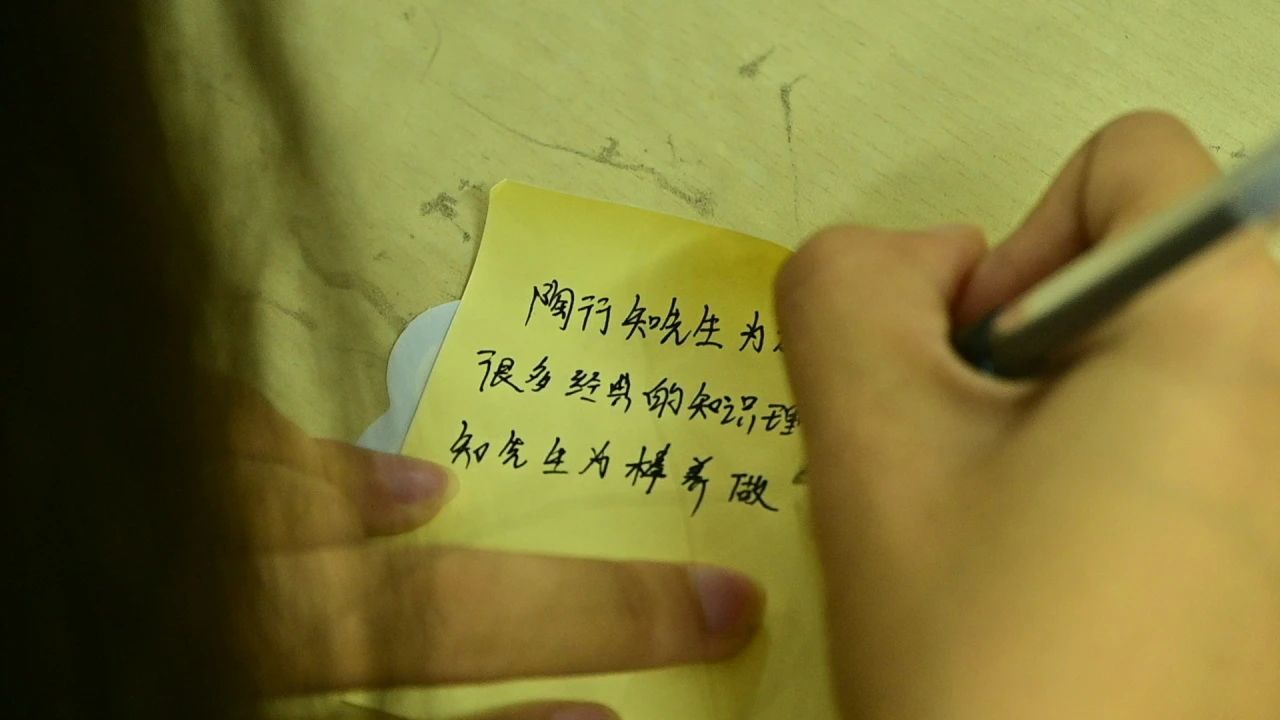 陶行知先生为
很多经典的知识理
知先生为榜养做